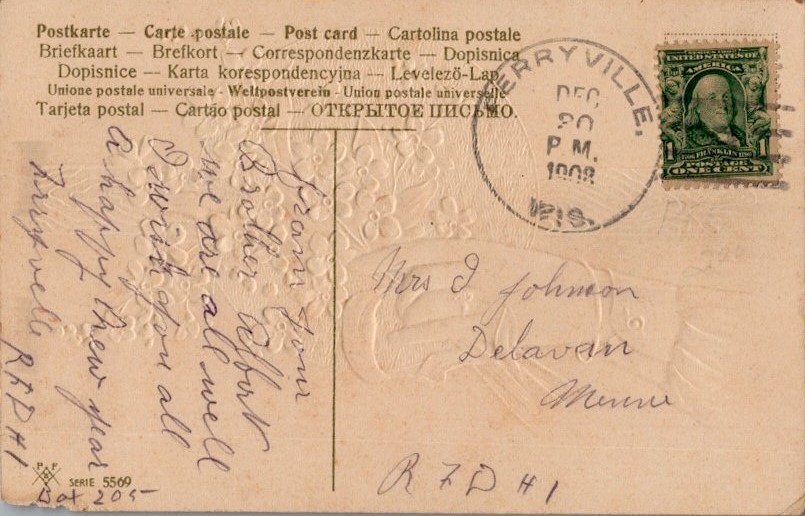 Postkarte — Carte postale — Post card — Cartolina postale
Briefkaart — Brefkort — Correspondenzkarte — Dopisnica
Dopisnice — Karta korespondencyjna — Levelező-Lap
Unione postale universale - Weltpostverein - Union postale universelle
Tarjeta postal — Cartão postal — ОТКРЫТОЕ ПИСЬМО.
FERRYVILLE,
DEC
P. M.
1908
WIS.
UNITED STATES OF
AMERICA
1 FRANKLIN 1
POSTAGE
ONE CENT
from your
Brother Albert
we are all well
I wish you all
a happy new year
Ferryville RFD #1
Box 205
Mrs J Johnson
Delavan
Minne
RFD #1
PFB
SERIE 5569